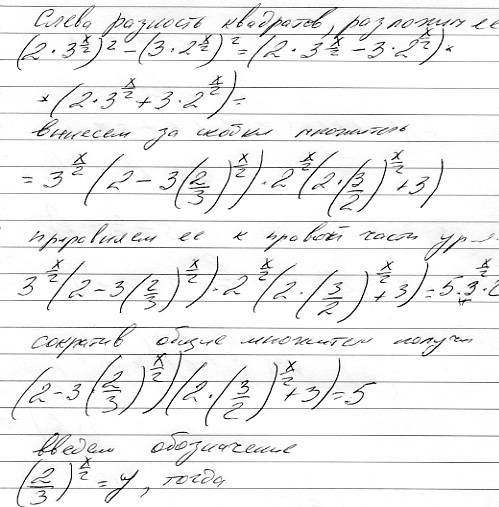 Слева разность квадратов, разложим ее
(2·3^{x/2})² − (3·2^{x/2})² = (2·3^{x/2} − 3·2^{x/2})*
*(2·3^{x/2} + 3·2^{x/2}) =
вынесем за скобки множитель
= 3^{x/2}(2 − 3(2/3)^{x/2})·2^{x/2}(2·(3/2)^{x/2} + 3)
приравняем ее к правой части ур-
3^{x/2}(2 − 3(2/3)^{x/2})·2^{x/2}(2·(3/2)^{x/2} + 3) = 5·3^{x/2}·2
сократив общие множители получи
(2 − 3(2/3)^{x/2})(2·(3/2)^{x/2} + 3) = 5
введем обозначение
(2/3)^{x/2} = y, тогда